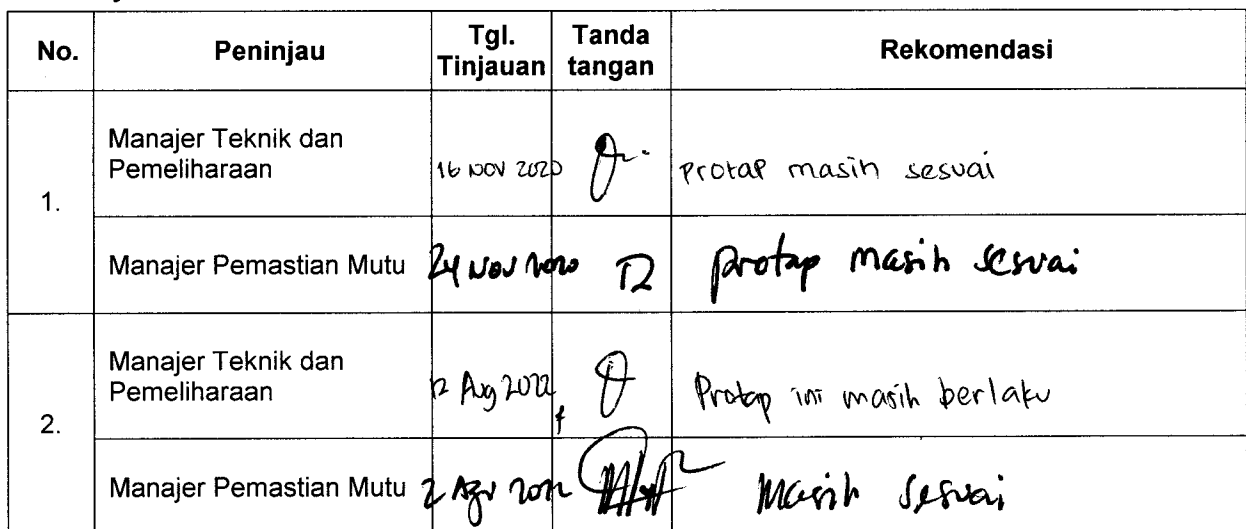 No.
Peninjau
Tgl.
Tinjauan
Tanda
tangan
Rekomendasi
1.
Manajer Teknik dan
Pemeliharaan
16 NOV 2020
protap masih sesuai
Manajer Pemastian Mutu
24 Nov 2020
protap masih sesuai
2.
Manajer Teknik dan
Pemeliharaan
12 Aug 2022
Protap ini masih berlaku
Manajer Pemastian Mutu
2022
Masih sesuai